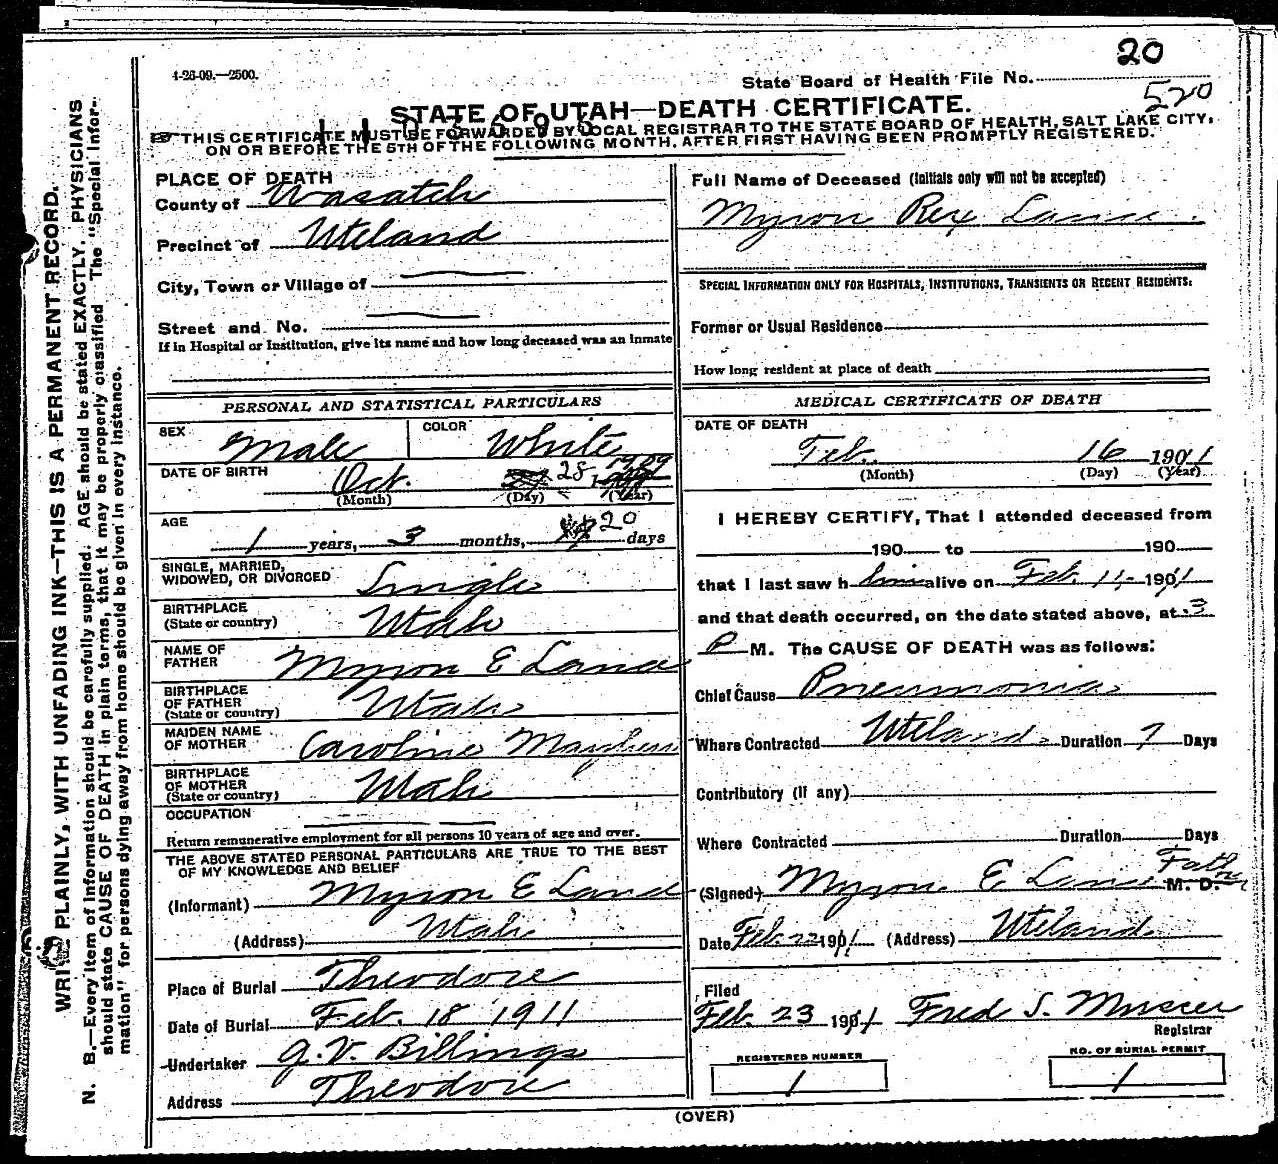 20
4-26-09.—2500.
State Board of Health File No.
520
STATE OF UTAH—DEATH CERTIFICATE.
THIS CERTIFICATE MUST BE FORWARDED BY LOCAL REGISTRAR TO THE STATE BOARD OF HEALTH, SALT LAKE CITY,
ON OR BEFORE THE 5TH OF THE FOLLOWING MONTH, AFTER FIRST HAVING BEEN PROMPTLY REGISTERED.
WRITE PLAINLY, WITH UNFADING INK—THIS IS A PERMANENT RECORD.
N. B.—Every item of information should be carefully supplied. AGE should be stated EXACTLY. PHYSICIANS
should state CAUSE OF DEATH in plain terms, that it may be properly classified The "Special Infor-
mation" for persons dying away from home should be given in every instance.
PLACE OF DEATH
County of Wasatch
Precinct of Uteland
City, Town or Village of
Street and No.
If in Hospital or Institution, give its name and how long deceased was an Inmate
PERSONAL AND STATISTICAL PARTICULARS
SEX Male COLOR White
DATE OF BIRTH Oct. 28 1909
(Month) (Day) (Year)
AGE
1 years, 3 months, 20 days
SINGLE, MARRIED,
WIDOWED, OR DIVORCED Single
BIRTHPLACE
(State or country) Utah
NAME OF
FATHER Myron E
BIRTHPLACE
OF FATHER
(State or country) Utah
MAIDEN NAME
OF MOTHER Caroline
BIRTHPLACE
OF MOTHER
(State or country) Utah
OCCUPATION
Return remunerative employment for all persons 10 years of age and over.
THE ABOVE STATED PERSONAL PARTICULARS ARE TRUE TO THE BEST
OF MY KNOWLEDGE AND BELIEF
(Informant) Myron E
(Address) Utah
Place of Burial Theodore
Date of Burial Feb. 18 1911
Undertaker J. V. Billings
Address Theodore
Full Name of Deceased (Initials only will not be accepted)
Myron Rex
SPECIAL INFORMATION ONLY FOR HOSPITALS, INSTITUTIONS, TRANSIENTS OR RECENT RESIDENTS:
Former or Usual Residence
How long resident at place of death
MEDICAL CERTIFICATE OF DEATH
DATE OF DEATH
Feb. 16 1911
(Month) (Day) (Year)
I HEREBY CERTIFY, That I attended deceased from
190 to 190
that I last saw h him alive on Feb. 1911
and that death occurred, on the date stated above, at 3
P M. The CAUSE OF DEATH was as follows:
Chief Cause Pneumonia
Where Contracted Uteland Duration 7 Days
Contributory (if any)
Where Contracted Duration Days
(Signed) Myron E Father M. D.
Date Feb 22 1911 (Address) Uteland
Filed
Feb. 23 1911 Fred S. Musser
Registrar
REGISTERED NUMBER
1
NO. OF BURIAL PERMIT
1
(OVER)